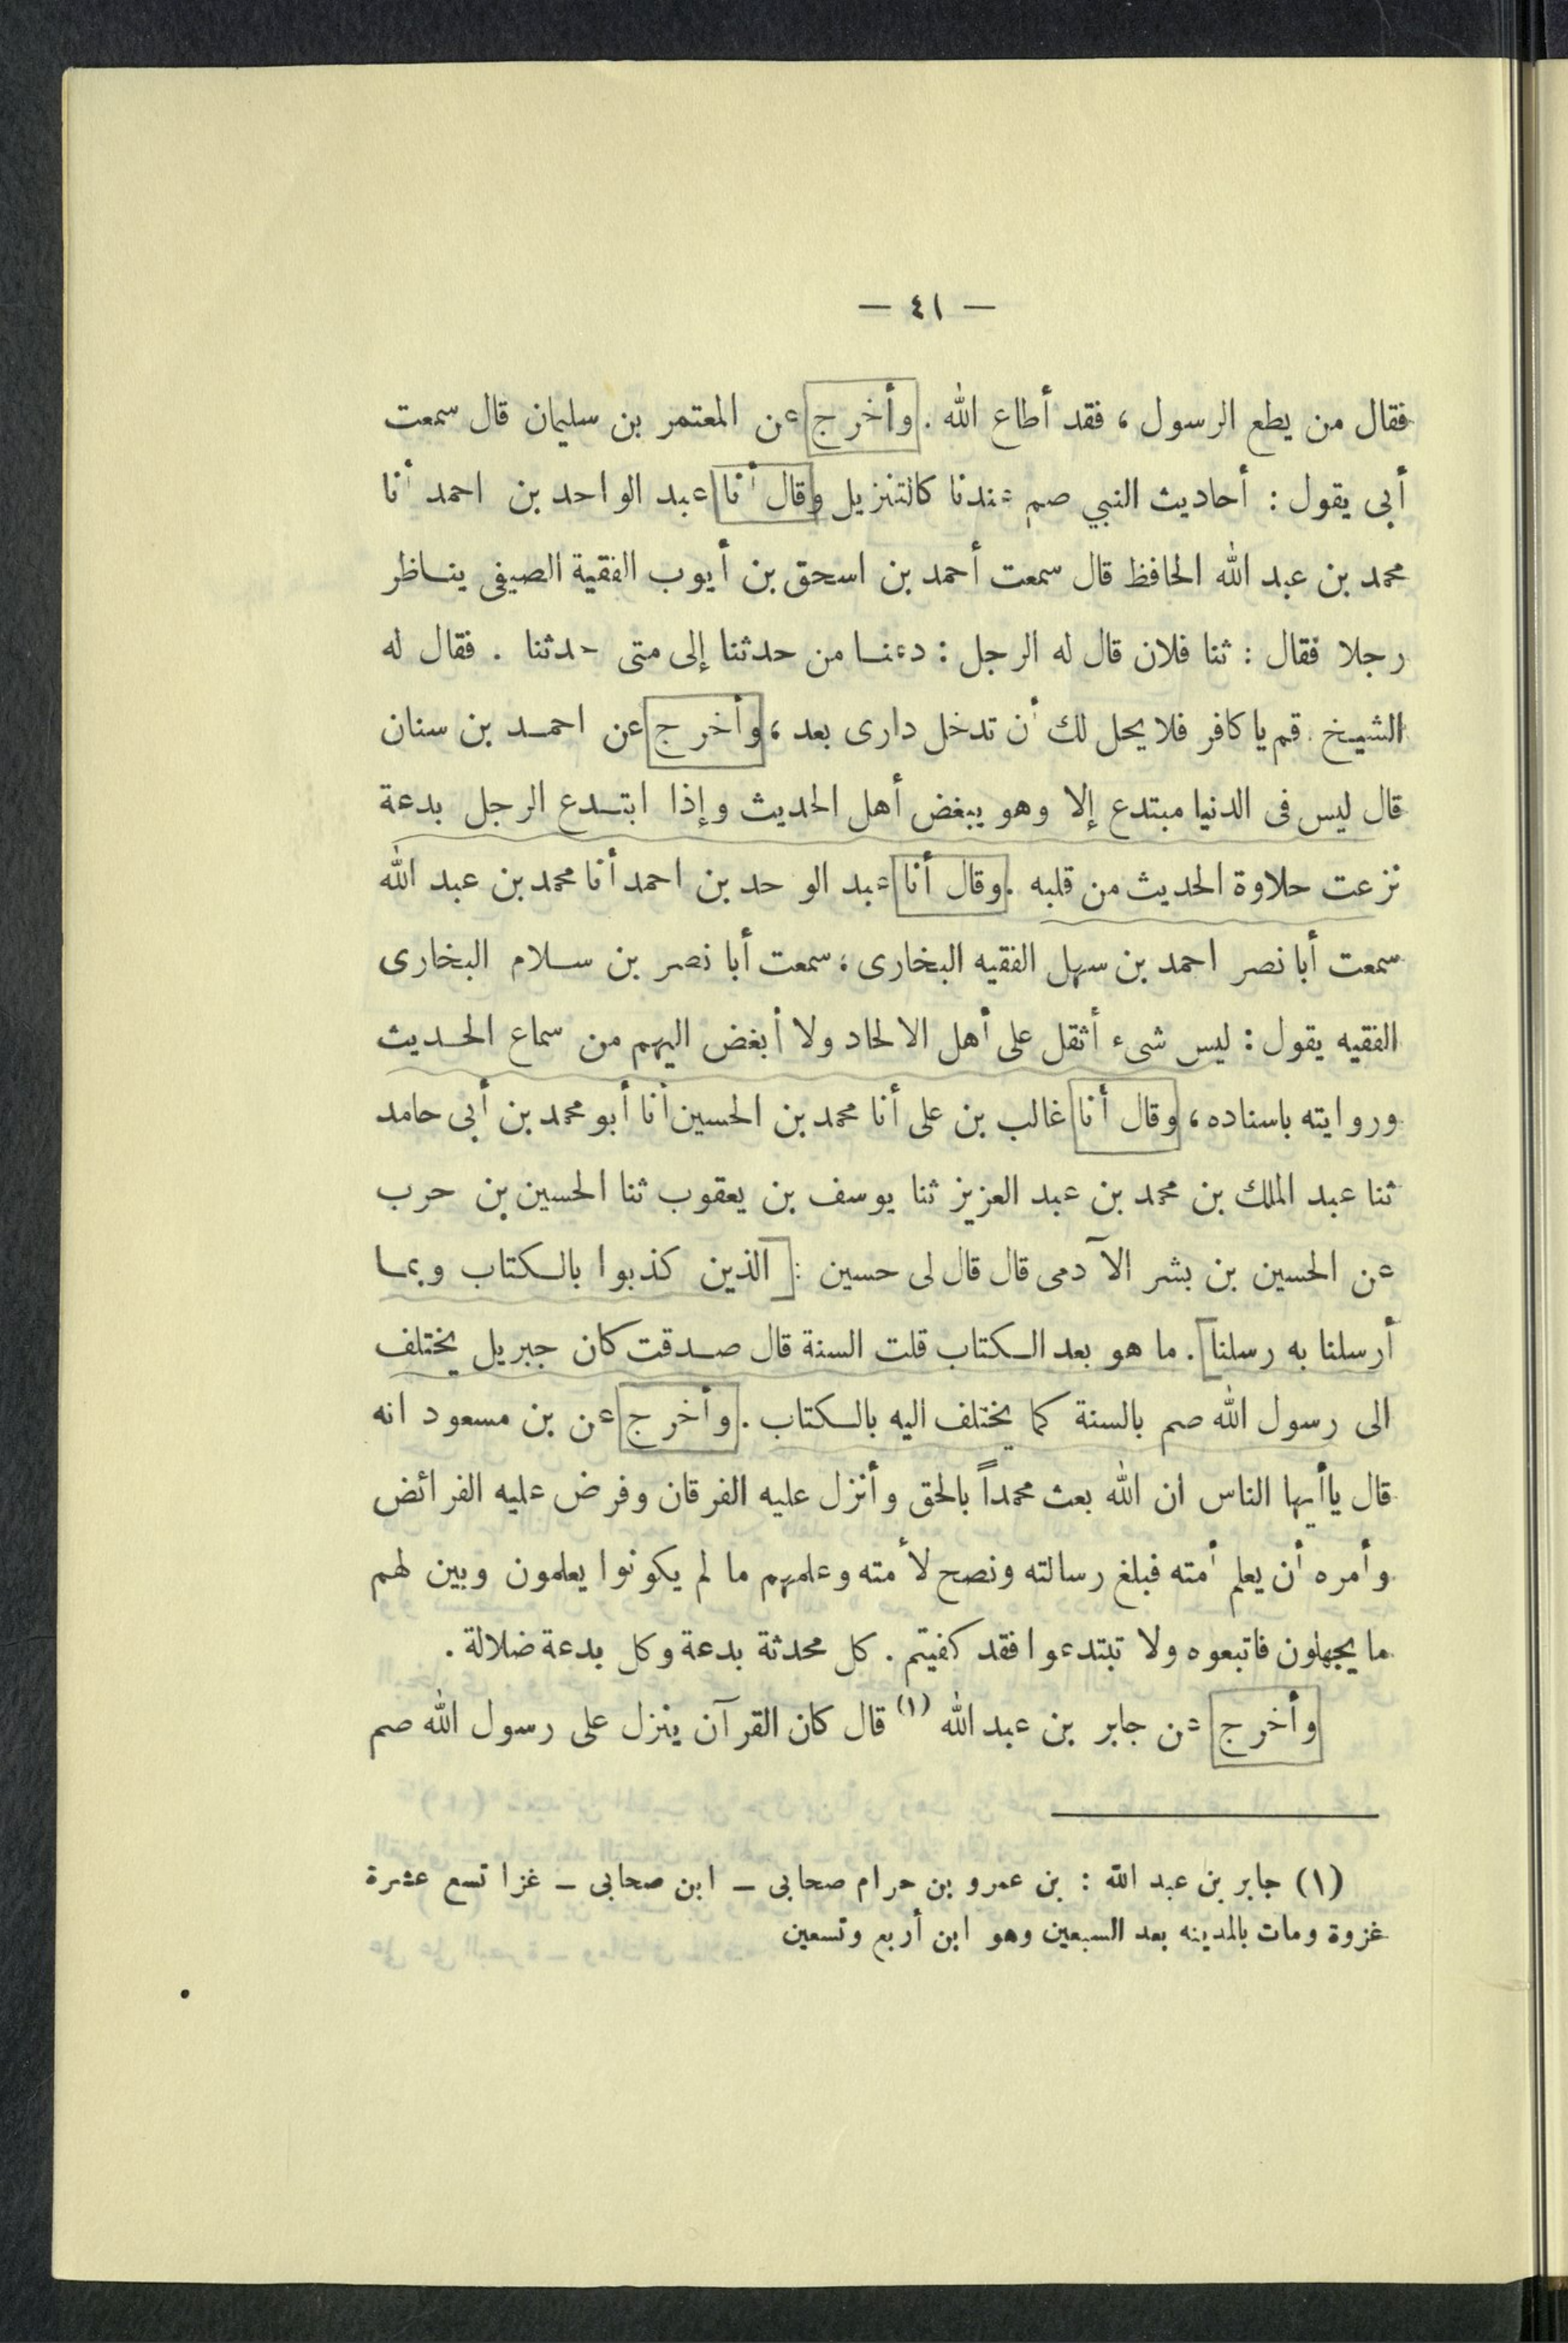 — ٤١ —
فقال من يطع الرسول ، فقد أطاع الله . وأخرج عن المعتمر بن سليمان قال سمعت
أبى يقول : أحاديث النبي صم عندنا كالتنزيل وقال أنا عبد الواحد بن احمد أنا
محمد بن عبد الله الحافظ قال سمعت أحمد بن اسحق بن أيوب الفقية الصيفى يناظر
رجلا فقال : ثنا فلان قال له الرجل : دعنا من حدثنا إلى متى حدثنا . فقال له
الشيخ . قم يا كافر فلا يحل لك أن تدخل دارى بعد ، وأخرج عن احمد بن سنان
قال ليس فى الدنيا مبتدع إلا وهو يبغض أهل الحديث وإذا ابتدع الرجل بدعة
نزعت حلاوة الحديث من قلبه . وقال أنا عبد الو حد بن احمد أنا محمد بن عبد الله
سمعت أبا نصر احمد بن سهل الفقيه البخارى ، سمعت أبا نصر بن سلام البخارى
الفقيه يقول : ليس شىء أثقل على أهل الالحاد ولا أبغض اليهم من سماع الحديث
وروايته باسناده ، وقال أنا غالب بن على أنا محمد بن الحسين أنا أبو محمد بن أبى حامد
ثنا عبد الملك بن محمد بن عبد العزيز ثنا يوسف بن يعقوب ثنا الحسين بن حرب
عن الحسين بن بشر الآدمى قال قال لى حسين : [ الذين كذبوا بالكتاب وبما
أرسلنا به رسلنا ] . ما هو بعد الكتاب قلت السنة قال صدقت كان جبريل يختلف
الى رسول الله صم بالسنة كما يختلف اليه بالكتاب . وأخرج عن بن مسعود انه
قال ياأيها الناس ان الله بعث محمداً بالحق وأنزل عليه الفرقان وفرض عليه الفرائض
وأمره أن يعلم أمته فبلغ رسالته ونصح لأمته وعلمهم ما لم يكونوا يعلمون وبين لهم
ما يجهلون فاتبعوه ولا تبتدعوا فقد كفيتم . كل محدثة بدعة وكل بدعة ضلالة .
وأخرج عن جابر بن عبد الله (١) قال كان القرآن ينزل على رسول الله صم
(١) جابر بن عبد الله : بن عمرو بن حرام صحابى – ابن صحابى – غزا تسع عشرة
غزوة ومات بالمدينه بعد السبعين وهو ابن أربع وتسعين